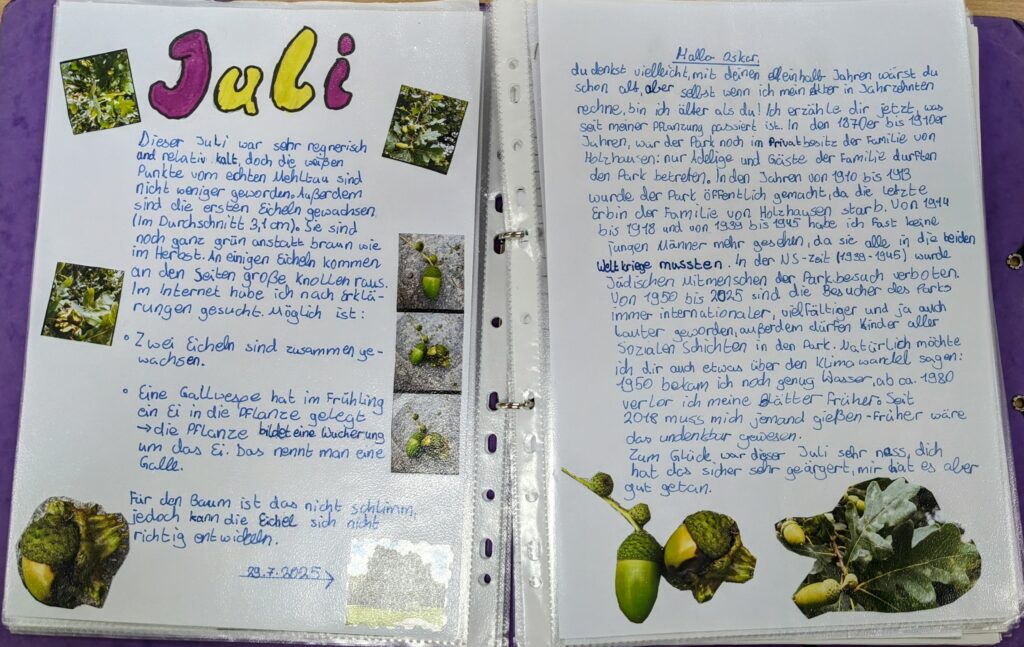 Juli
Dieser Juli war sehr regnerisch
und relativ kalt, doch die weißen
Punkte vom echten Mehltau sind
nicht weniger geworden. Außerdem
sind die ersten Eicheln gewachsen
(Im Durchschnitt 3,1 cm). Sie sind
noch ganz grün anstatt braun wie
im Herbst. An einigen Eicheln kommen
an den Seiten große Knollen raus.
Im Internet habe ich nach Erklä-
rungen gesucht. Möglich ist:
• Zwei Eicheln sind zusammenge-
wachsen.
• Eine Gallwespe hat im Frühling
ein Ei in die Pflanze gelegt
→ die Pflanze bildet eine Wucherung
um das Ei. Das nennt man eine
Galle.
Für den Baum ist das nicht schlimm,
jedoch kann die Eichel sich nicht
richtig entwickeln.
29.7.2025→
Hallo Oskar,
du denkst vielleicht, mit deinen elfeinhalb Jahren wärst du
schon alt, aber selbst wenn ich mein Alter in Jahrzehnten
rechne, bin ich älter als du! Ich erzähle dir jetzt, was
seit meiner Pflanzung passiert ist. In den 1870er bis 1910er
Jahren, war der Park noch im Privatbesitz der Familie von
Holzhausen: nur Adelige und Gäste der Familie durften
den Park betreten. In den Jahren von 1910 bis 1913
wurde der Park öffentlich gemacht, da die letzte
Erbin der Familie von Holzhausen starb. Von 1914
bis 1918 und von 1939 bis 1945 habe ich fast keine
jungen Männer mehr gesehen, da sie alle in die beiden
Weltkriege mussten. In der NS-Zeit (1939-1945) wurde
Jüdischen Mitmenschen der Parkbesuch verboten.
Von 1950 bis 2025 sind die Besucher des Parks
immer internationaler, vielfältiger und ja auch
lauter geworden, außerdem dürfen Kinder aller
Sozialen Schichten in den Park. Natürlich möchte
ich dir auch etwas über den Klimawandel sagen:
1950 bekam ich noch genug Wasser, ab ca. 1980
verlor ich meine Blätter früher. Seit
2018 muss mich jemand gießen - früher wäre
das undenkbar gewesen.
Zum Glück war dieser Juli sehr nass, dich
hat das sicher sehr geärgert, mir hat es aber
gut getan.